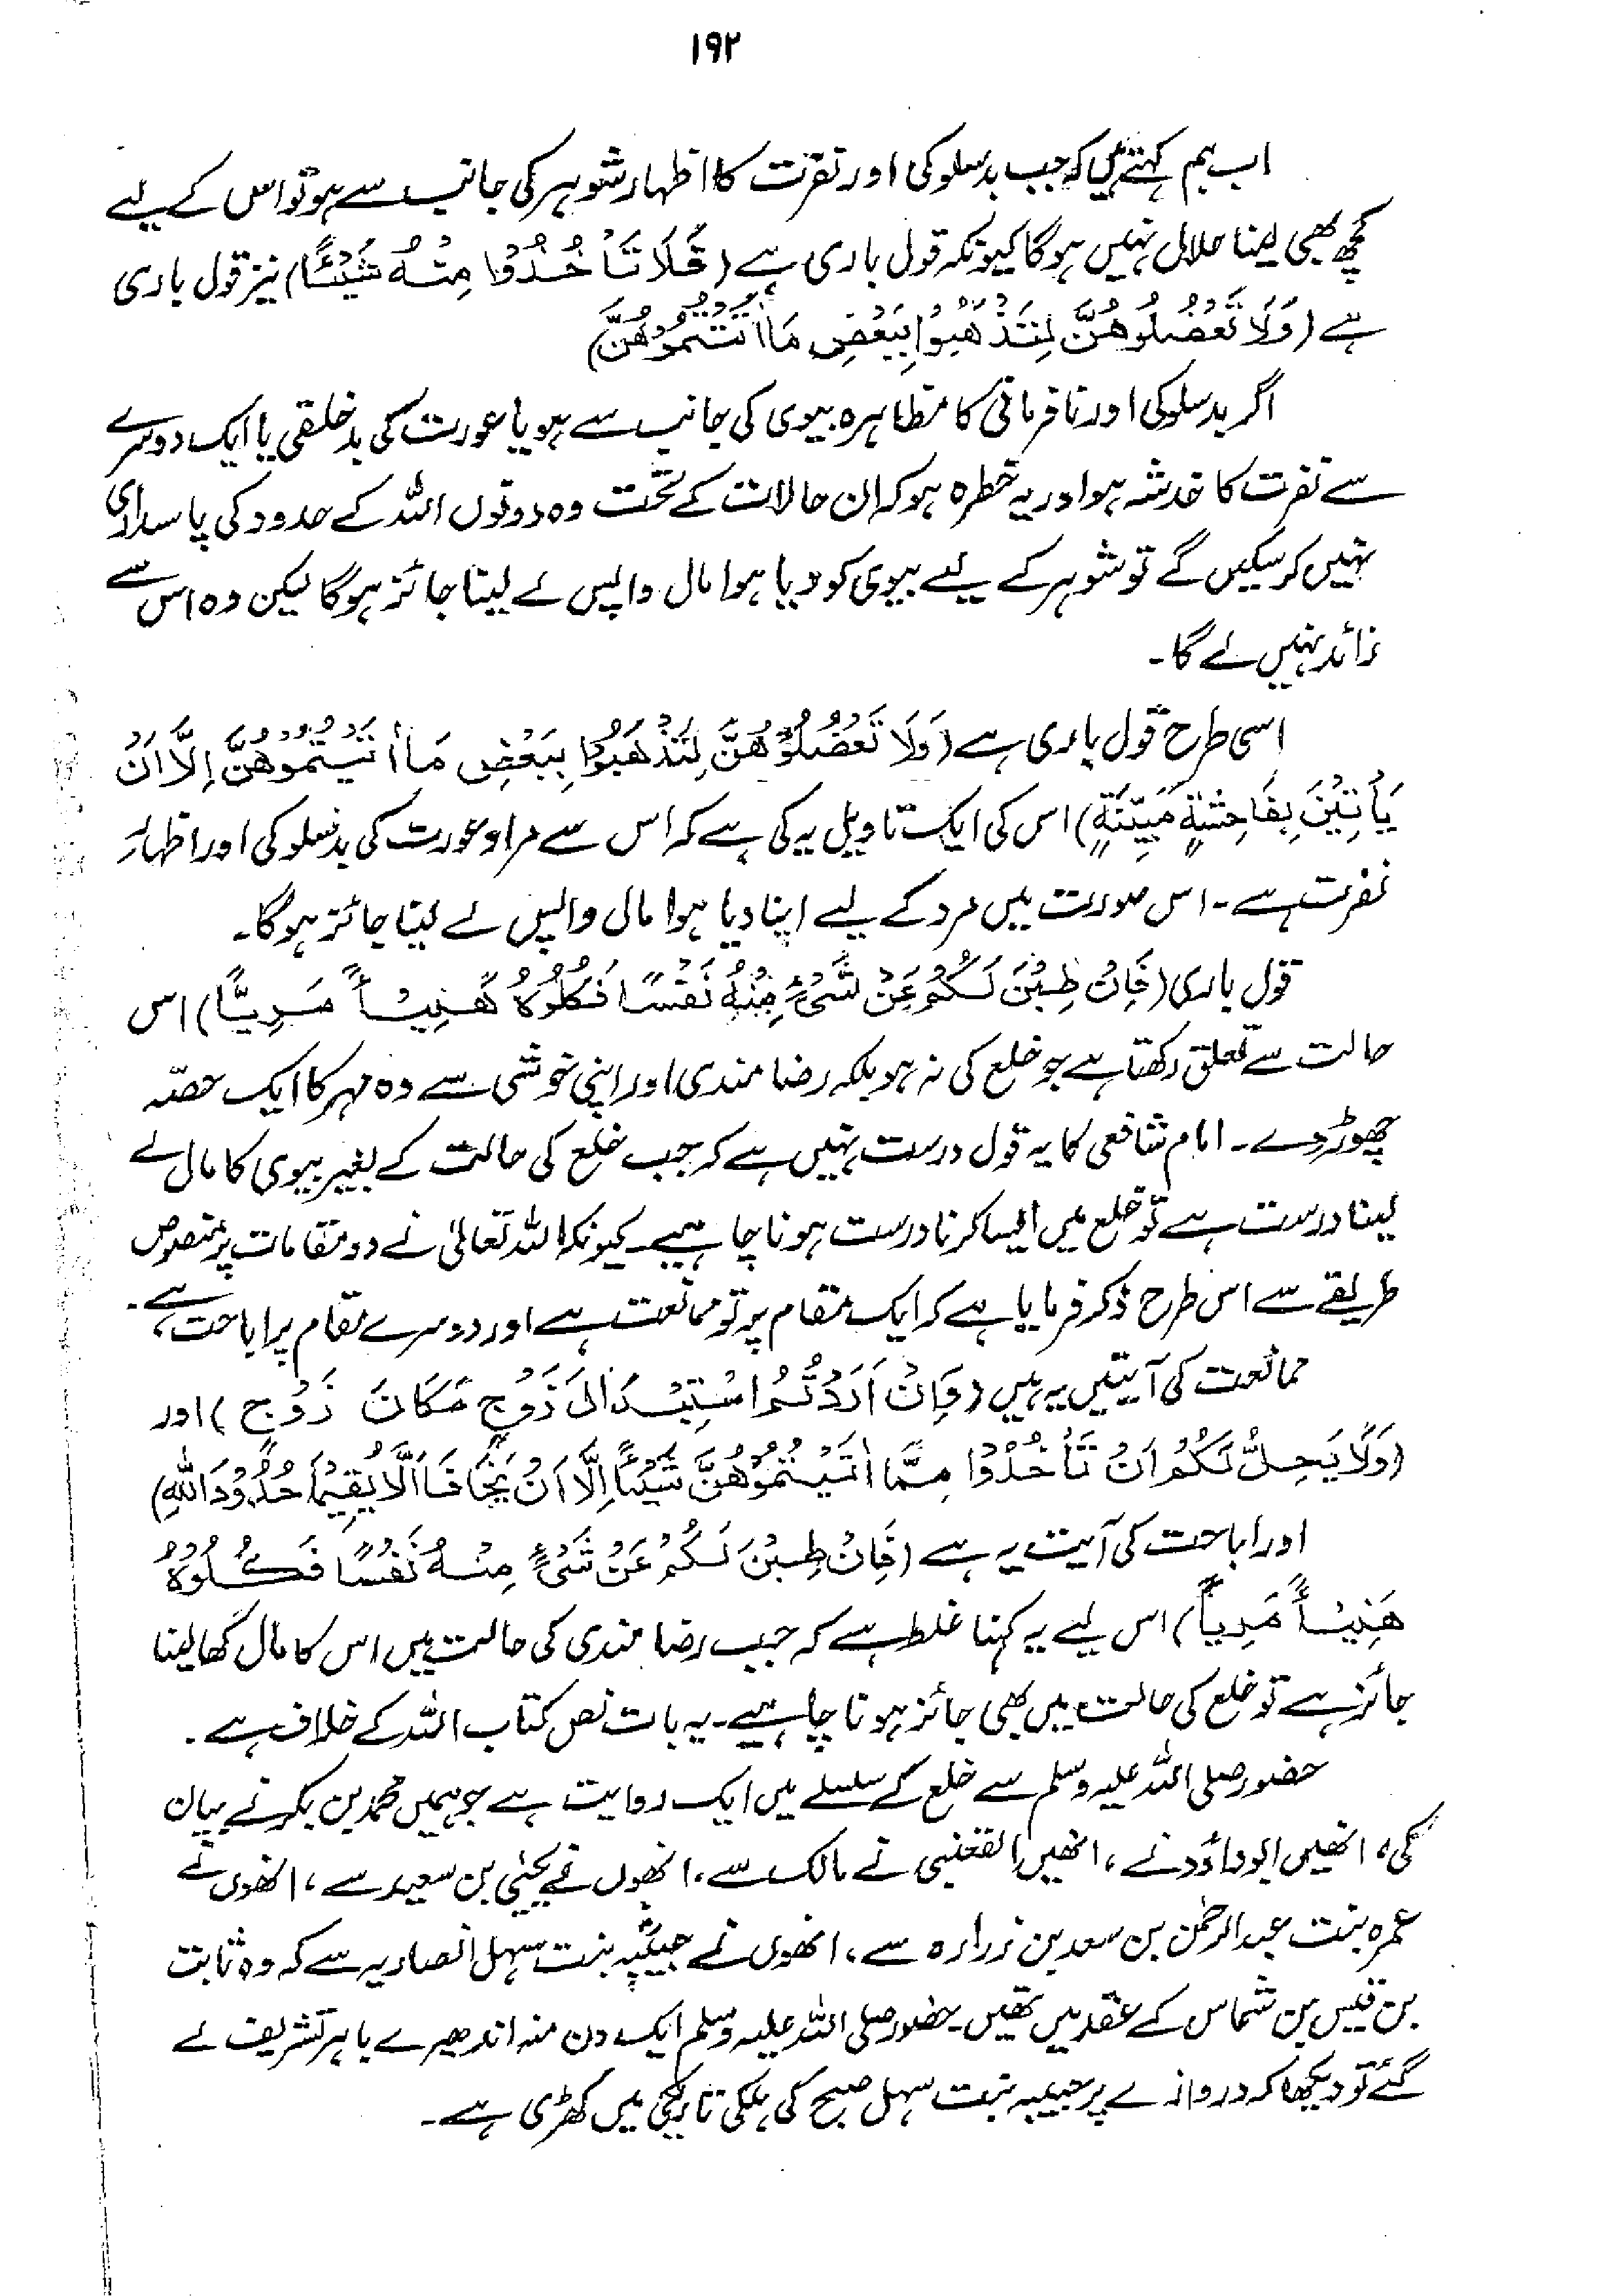 ۱۹۲
اب ہم کہتے ہیں کہ جب بدسلوکی اور نفرت کا اظہار شوہر کی جانب سے ہو تو اس کے لیے
کچھ بھی لینا حلال نہیں ہوگا کیونکہ قول باری ہے (فَلَا تَأْخُذُوْا مِنْهُ شَيْئًا) نیز قول باری
ہے (وَلَا تَعْضُلُوْهُنَّ لِتَذْهَبُوْا بِبَعْضِ مَا اٰتَيْتُمُوْهُنَّ)
اگر بدسلوکی اور نافرمانی کا مظاہرہ بیوی کی جانب سے ہو یا عورت کی بدخلقی یا ایک دوسرے
سے نفرت کا خدشہ ہو اور یہ خطرہ ہو کہ ان حالات کے تحت وہ دونوں اللہ کے حدود کی پاسداری
نہیں کرسکیں گے تو شوہر کے لیے بیوی کو دیا ہوا مال واپس لے لینا جائز ہوگا لیکن وہ اس سے
زائد نہیں لے گا۔
اسی طرح قول باری ہے (وَلَا تَعْضُلُوْهُنَّ لِتَذْهَبُوْا بِبَعْضِ مَا اٰتَيْتُمُوْهُنَّ اِلَّا اَنْ
يَأْتِيْنَ بِفَاحِشَةٍ مُّبَيِّنَةٍ) اس کی ایک تاویل یہ کی ہے کہ اس سے مراد عورت کی بدسلوکی اور اظہار
نفرت ہے۔ اس صورت میں مرد کے لیے اپنا دیا ہوا مال واپس لے لینا جائز ہوگا۔
قول باری (فَاِنْ طِبْنَ لَكُمْ عَنْ شَيْءٍ مِنْهُ نَفْسًا فَكُلُوْهُ هَنِيْئًا مَرِيًّا) اس
حالت سے تعلق رکھتا ہے جو خلع کی نہ ہو بلکہ رضامندی اور اپنی خوشی سے وہ مہر کا ایک حصّہ
چھوڑ دے۔ امام شافعی کا یہ قول درست نہیں ہے کہ جب خلع کی حالت کے بغیر بیوی کا مال لے
لینا درست ہے تو خلع میں ایسا کرنا درست ہونا چاہیے۔ کیونکہ اللہ تعالیٰ نے دو مقامات پر منصوص
طریقے سے اس طرح ذکر فرمایا ہے کہ ایک مقام پر تو ممانعت ہے اور دوسرے مقام پر اباحت ہے۔
ممانعت کی آیتیں یہ ہیں (وَاِنْ اَرَدْتُّمُ اسْتِبْدَالَ زَوْجٍ مَّكَانَ زَوْجٍ) اور
(وَلَا يَحِلُّ لَكُمْ اَنْ تَأْخُذُوْا مِمَّا اٰتَيْتُمُوْهُنَّ شَيْئًا اِلَّا اَنْ يَّخَافَا اَلَّا يُقِيْمَا حُدُوْدَ اللّٰهِ)
اور اباحت کی آیت یہ ہے (فَاِنْ طِبْنَ لَكُمْ عَنْ شَيْءٍ مِنْهُ نَفْسًا فَكُلُوْهُ
هَنِيْئًا مَرِيًّا) اس لیے یہ کہنا غلط ہے کہ جب رضامندی کی حالت میں اس کا مال کھا لینا
جائز ہے تو خلع کی حالت میں بھی جائز ہونا چاہیے۔ یہ بات نص کتاب اللہ کے خلاف ہے۔
حضور صلی اللہ علیہ وسلم سے خلع کے سلسلے میں ایک روایت ہے جو ہمیں محمد بن بکر نے بیان
کی، انھیں ابوداؤد نے، انھیں القعنبی نے مالک سے، انھوں نے یحییٰ بن سعید سے، انھوں نے
عمرہ بنت عبدالرحمٰن بن سعد بن زرارہ سے، انھوں نے حبیبہ بنت سہل انصاریہ سے کہ وہ ثابت
بن قیس بن شماس کے عقد میں تھیں۔ حضور صلی اللہ علیہ وسلم ایک دن منہ اندھیرے باہر تشریف لے
گئے تو دیکھا کہ دروازے پر حبیبہ بنت سہل صبح کی ہلکی تاریکی میں کھڑی ہے۔